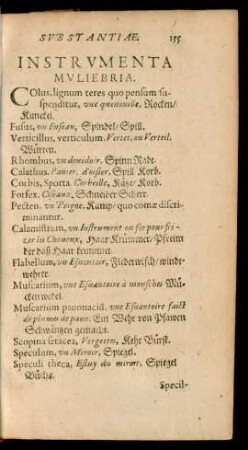 SVBSTANTIAE. 155
INSTRVMENTA
MVLIEBRIA.
COlus, lignum teres quo pensum su-
spenditur, vne quenouille, Rocken/
Kunckel.
Fusus, vn Fuseau, Spindel/ Spill.
Verticillus, verticulum. Vertet, ou Verteil.
Würten.
Rhombus, vn deuidoir. Spinn Radt.
Calathus. Panier, d'osier, Spill Korb.
Corbis, Sporta. Corbeille, Käze/ Korb.
Forfex. Ciseaux, Schneider Schær.
Pecten. vn Peigne. Kamp/ quo comæ discri-
minantur.
Calamistrum, vn Instrument ou fer pour fri-
zer les Cheueux, Haar Krümmer/ Pfreim
der daß Haar krümmet.
Flabellum, vn Esuentoir, Flederwisch/ winde-
wehrer.
Muscarium, vne Esuantoire à mousches Mü-
ckenwedel.
Muscarium pauonaciū. vne Esuantoire faict
de plumes de paon. Ein Wehr von Pfawen
Schwäntzen gemacht.
Scopina setacea, Vergette, Kehr Bürst.
Speculum, vn Miroir, Spiegel.
Speculi theca, Estuy du miroer. Spiegel
Büchs.
Specil-